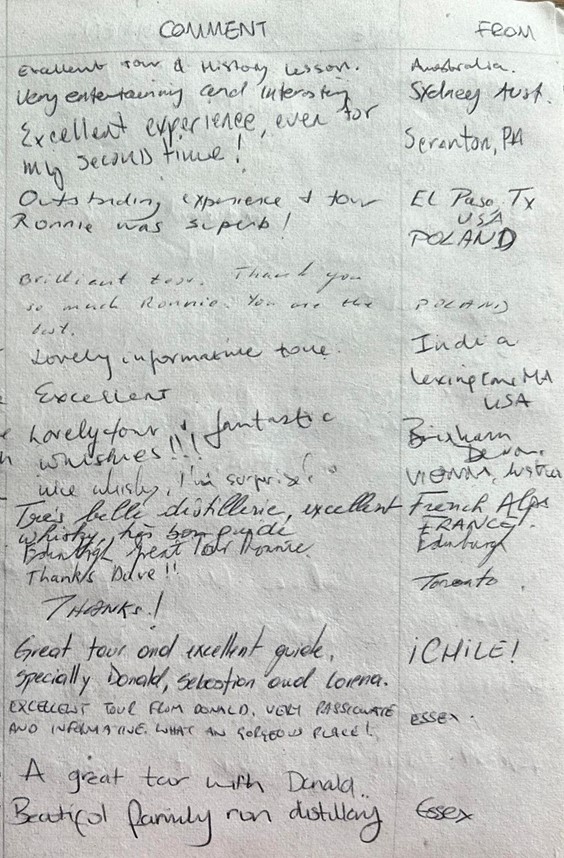 COMMENT FROM
Excellent Tour & History Lesson. Australia.
Very entertaining and interesting Sydney Aust.
Excellent experience, even for
my second time! Scranton, PA
Outstanding experience & tour EL Paso, Tx
Ronnie was superb! USA
POLAND
Brilliant tour. Thank you
so much Ronnie. You are the POLAND
best.
Lovely informative tour. India
Excellent Lexington MA
USA
Lovely tour, fantastic Brixham
whiskies!!! Devon.
nice whisky, I'm surprise! VIENNA, Austria
Très belle distillerie, excellent French Alps
whisky, très bon guide FRANCE!
Edinburgh Great Tour Ronnie. Edinburgh
Thanks Dave!! Toronto.
THANKS!
Great tour and excellent guide, ¡CHILE!
specially Donald, Sebastian and Lorena.
EXCELLENT TOUR FROM DONALD. VERY PASSIONATE essex.
AND INFORMATIVE. WHAT AN GORGEOUS PLACE!
A great tour with Donald..
Beautiful family run distillery Essex